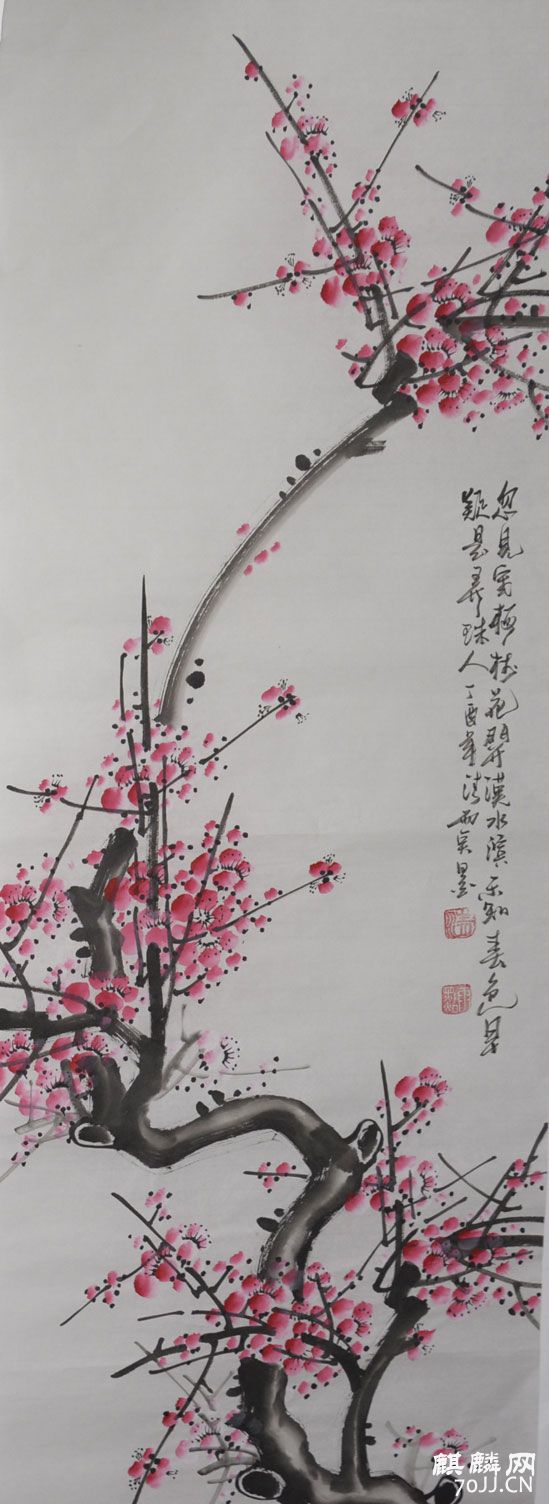 忽見寒梅樹花開漢水濱不知春色早
疑是弄珠人丁酉年
麒麟网
70JJ.CN